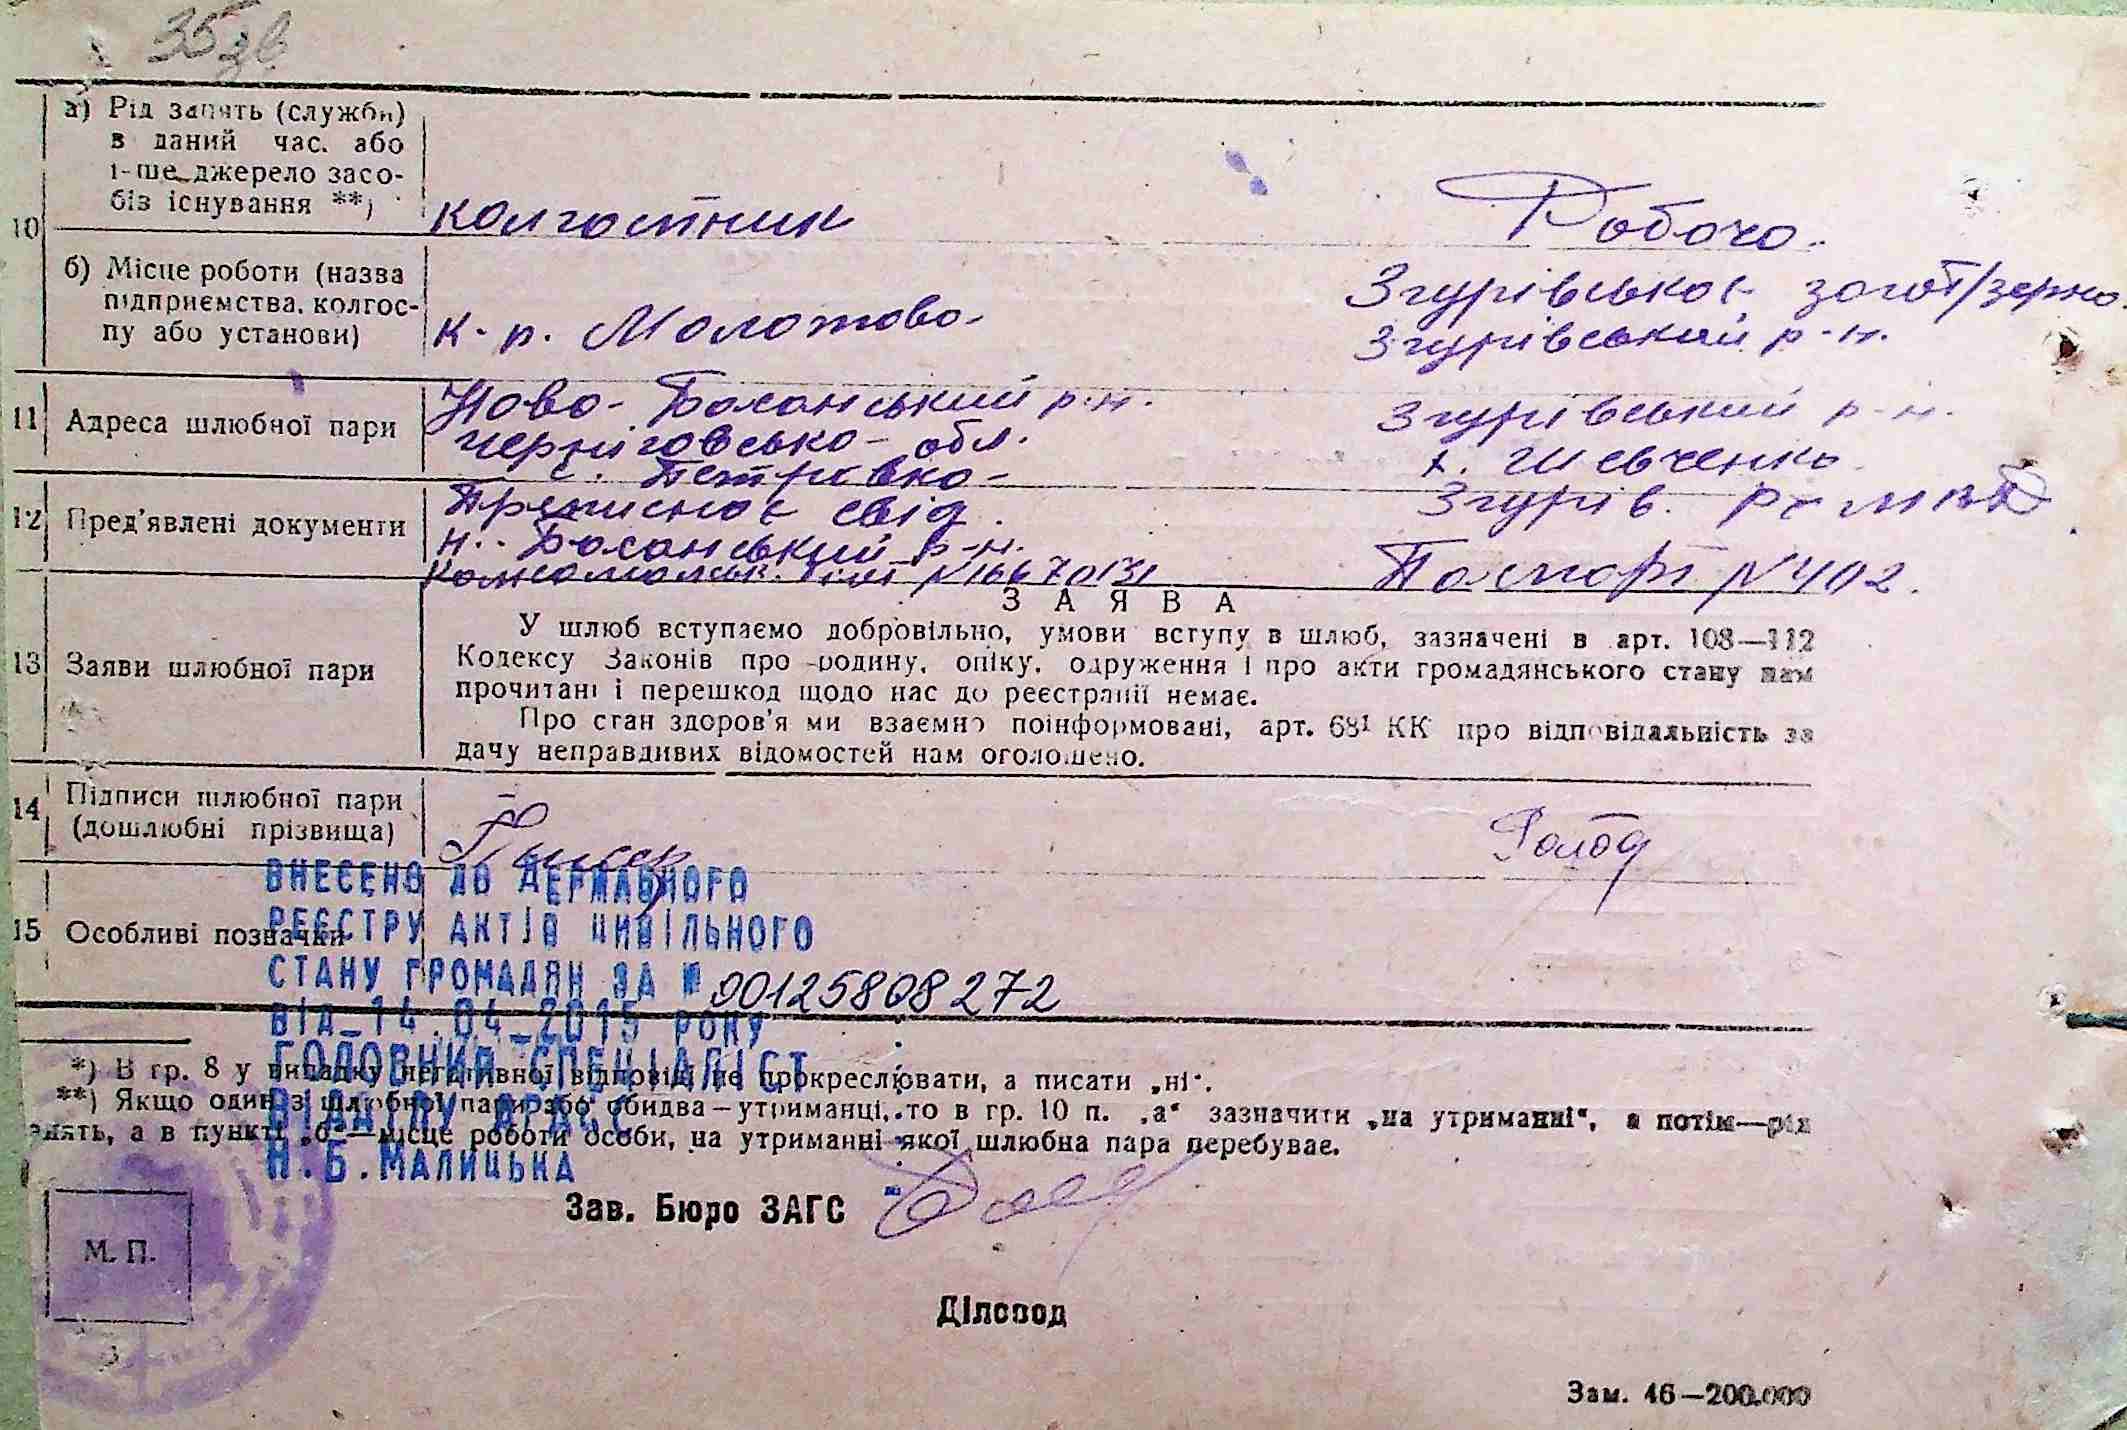 35 зв
10 а) Рід занять (служби) в даний час, або 1-ше джерело засобів існування **)
колгостник
Робочо.
б) Місце роботи (назва підприємства, колгоспу або установи)
к-п. Молотова.
Згурівське загот/зерно
Згурівський р-н.
11 Адреса шлюбної пари
Ново-Басанський р-н.
Черніговсько обл.
с. Петрівка
Згурівський р-н.
х. Шевченко
12 Пред'явлені документи
Преписное свід.
Н.-Басанський р-н.
Комсомольск. №16670131
Згурів.
Паспорт №402.
13 Заяви шлюбної пари
З А Я В А
У шлюб вступаємо добровільно, умови вступу в шлюб, зазначені в арт. 108—112
Кодексу Законів про родину, опіку, одруження і про акти громадянського стану нам
прочитані і перешкод щодо нас до реєстрації немає.
Про стан здоров'я ми взаємно поінформовані, арт. 68¹ КК про відповідальність за
дачу неправдивих відомостей нам оголошено.
14 Підписи шлюбної пари (дошлюбні прізвища)
Голод
15 Особливі позначки
ВНЕСЕНО ДО ДЕРЖАВНОГО
РЕЄСТРУ АКТІВ ЦИВІЛЬНОГО
СТАНУ ГРОМАДЯН ЗА № 00125808272
ВІД 14.04.2015 РОКУ
ГОЛОВНИЙ СПЕЦІАЛІСТ
ВІДДІЛУ ДРАЦС
Н.Б.МАЛИЦЬКА
*) В гр. 8 у випадку негативної відповіді не прокреслювати, а писати „ні“.
**) Якщо один з шлюбної пари або обидва—утриманці, то в гр. 10 п. „а“ зазначити „на утриманні“, а потім—рід
занять, а в пункті „б“—місце роботи особи, на утриманні якої шлюбна пара перебуває.
Зав. Бюро ЗАГС
М. П.
Діловод
Зам. 46—200.000